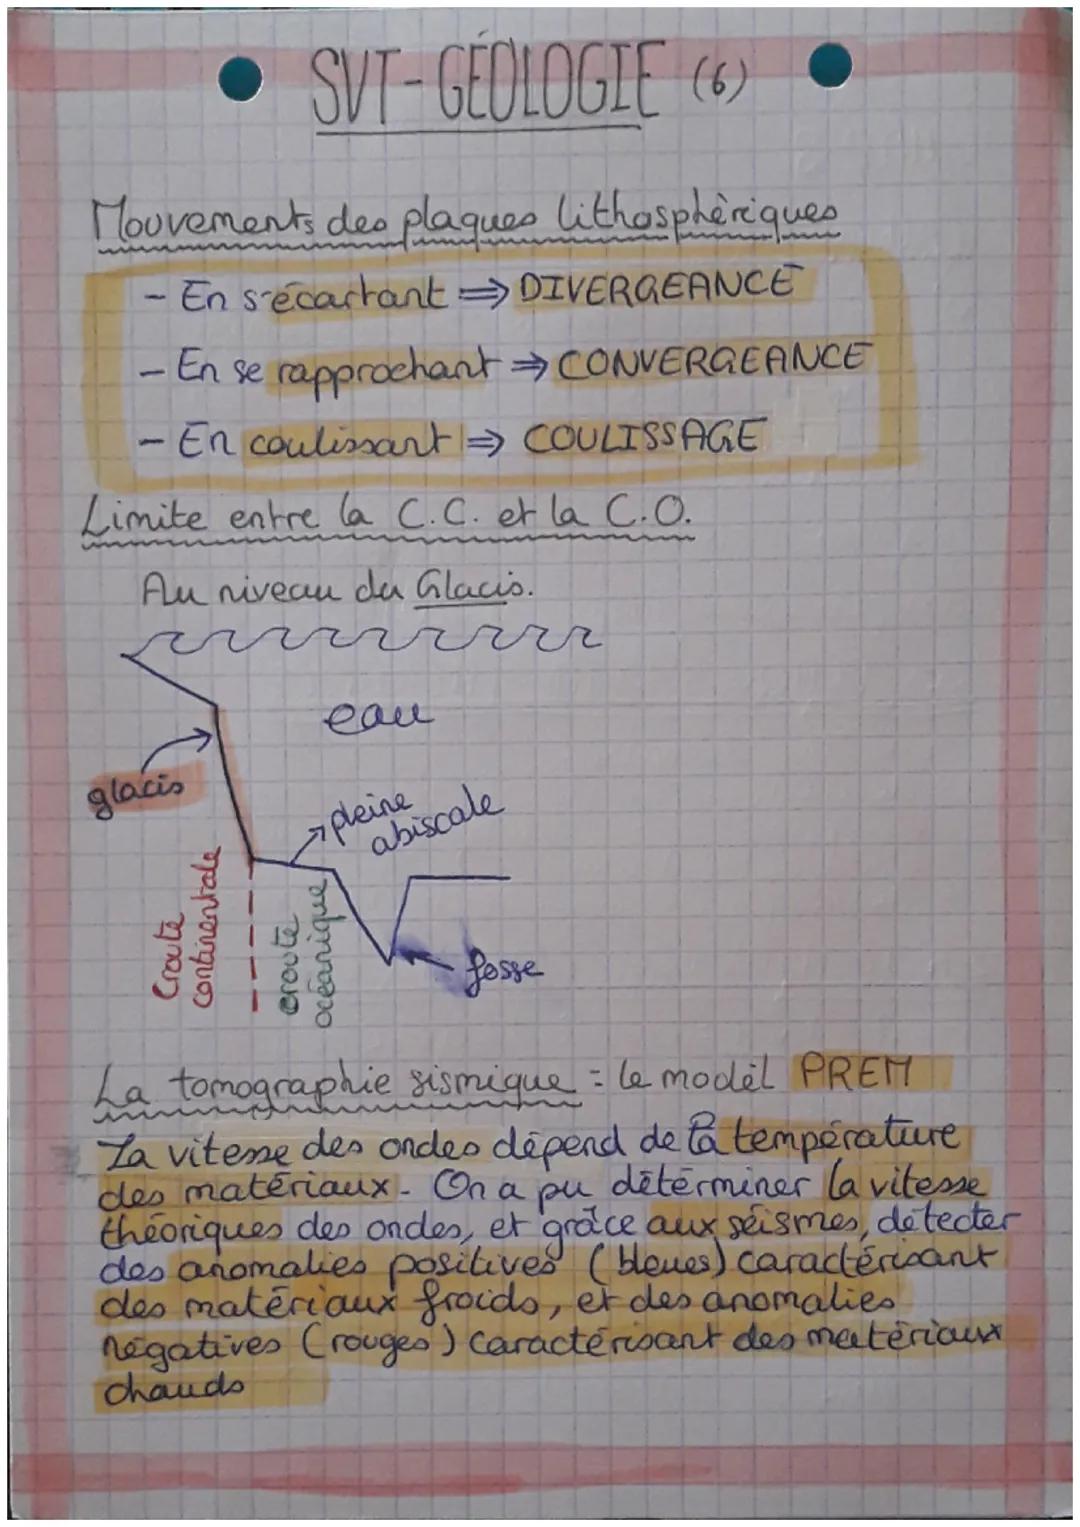 SVT-GÉOLOGIE (6)
Mouvements des plaques lithosphèriques
- En s'écartant ⇒ DIVERGEANCE
- En se rapprochant ⇒ CONVERGEANCE
- En coulissant ⇒ COULISSAGE
Limite entre la C.C. et la C.O.
Au niveau du Glacis.
eau
glacis
pleine
abiscale
Croute
continentale
croute
océanique
fosse
La tomographie sismique = le modèl PREM
La vitesse des ondes dépend de la température
des matériaux. On a pu détérminer la vitesse
théoriques des ondes, et grâce aux séismes, détecter
des anomalies positives (bleues) caractérisant
des matériaux froids, et des anomalies
négatives (rouges) caractérisant des matériaux
chauds